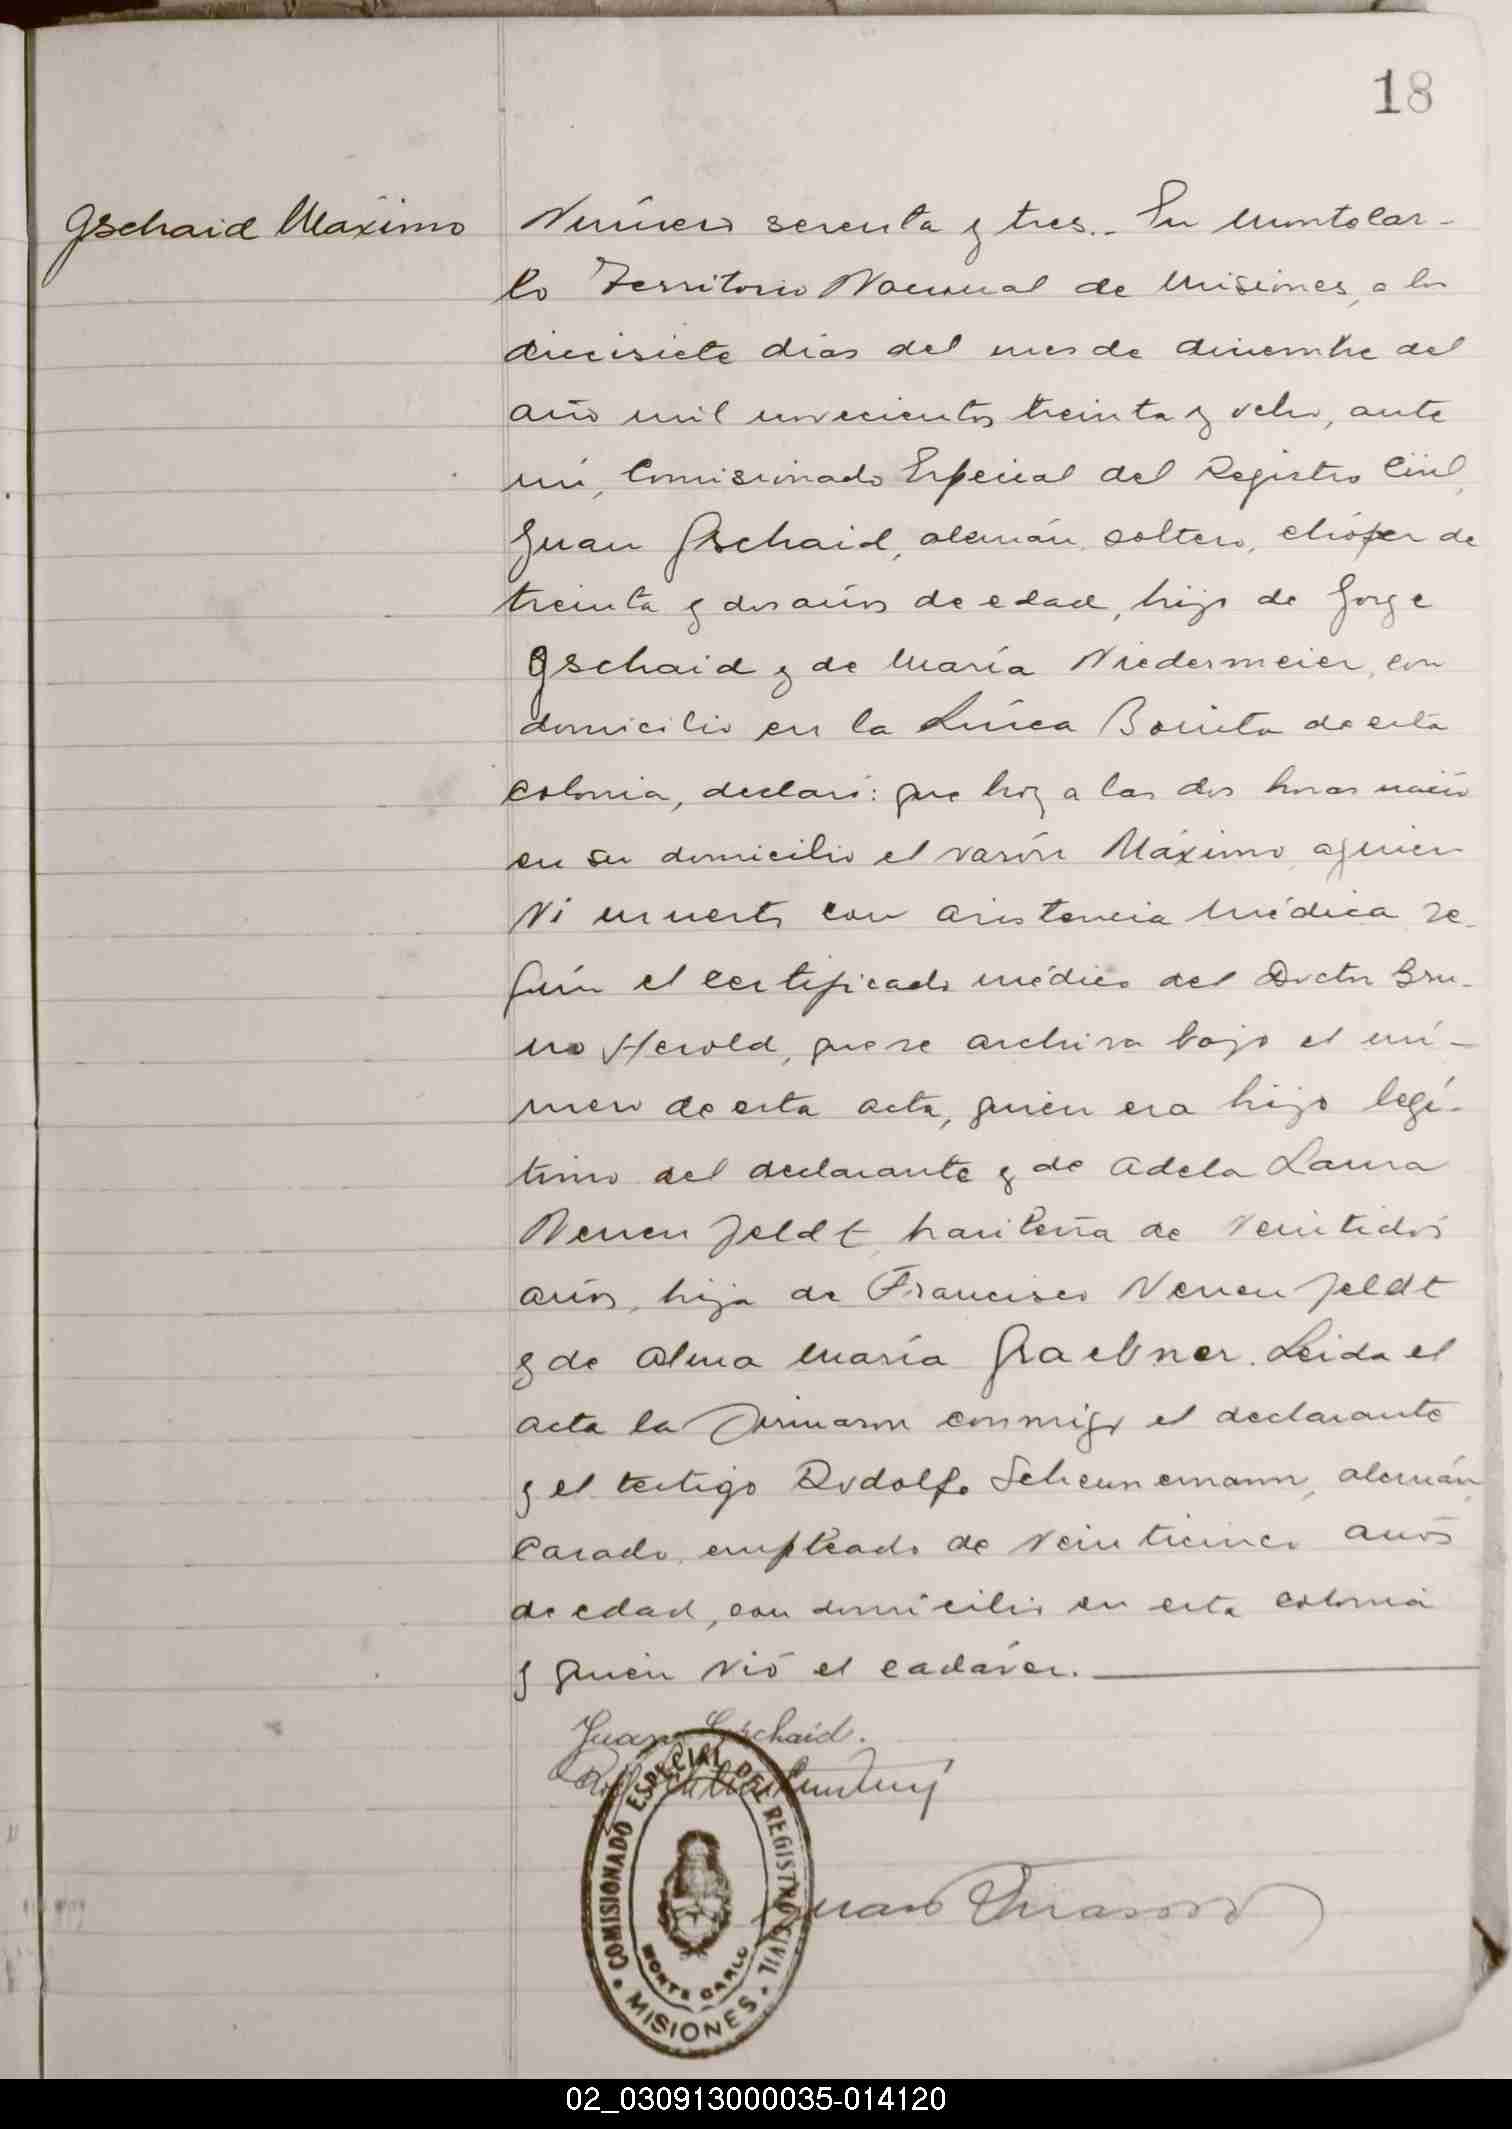 18
Gschaid Máximo
Número sesenta y tres.- En Montecar-
lo Territorio Nacional de Misiones, a los
diecisiete días del mes de diciembre del
año mil novecientos treinta y ocho, ante
mí, Comisionado Especial del Registro Civil,
Juan Gschaid, alemán, soltero, chófer de
treinta y dos años de edad, hijo de Jorge
Gschaid y de María Niedermeier, con
domicilio en la Línea Bonita de esta
colonia, declaró: que hoy a las dos horas nació
en su domicilio el varón Máximo, a quien
vi muerto con asistencia médica se-
gún el certificado médico del Doctor Bru-
no Herold, que se archiva bajo el nú-
mero de esta acta, quien era hijo legí-
timo del declarante y de Adela Laura
Neuenfeldt, brasileña de veintidós
años, hija de Francisco Neuenfeldt
y de Alma María Graebner. Leída el
acta la firmaron conmigo el declarante
y el testigo Rodolfo Scheunemann, alemán,
casado, empleado de veinticinco años
de edad, con domicilio en esta colonia
y quien vió el cadáver.
Juan Gschaid.
Juan
COMISIONADO ESPECIAL DEL REGISTRO CIVIL
MONTE CARLO
• MISIONES •
02_030913000035-014120